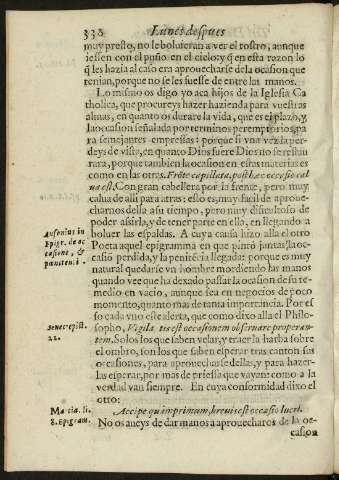 338 Lunes despues
muy presto, no le boluieran a ver el rostro, aunque
iessen con el puso en el cielo: y q̃ en esta razon lo
q̃ les hazia al caso era aprouecharse de la ocasion que
tenian, porque no se les fuesse de entre las manos.
Lo mismo os digo yo aca hijos de la Iglesia Ca
tholica, que procureys hazer hazienda para vuestras
almas, en quanto os durare la vida, que es el plazo, y
la ocasion señalada por terminos peremptorios, pa
ra semejantes empressas: porque si vna vez la per-
deys de vista, en quanto Dios fuere Dios no se restau
rara, porque tambien la ocasion en estas materias es
como en las otras. Frõte capillata, post hæc occasio cal
ua est. Con gran cabellera por la frente, pero muy
calua de alli para atras: esto es, muy facil de aproue-
charnos della a su tiempo, pero muy dificultoso de
poder assirla, y de tener parte en ello, en llegando a
boluer las espaldas. A cuya causa hizo alla el otro
Poeta aquel epigramma en que pintó juntas, la oca-
sio perdida, y la penitẽcia llegada: porque es muy
natural quedarse vn hombre mordiendo las manos
quando vee que ha dexado passar la ocasion de su re-
medio en vacio, aunque sea en negocios de poco
momento, quanto mas de tanta importancia. Por es
so cada vno este alerta, que como dixo alla el Philo-
sopho, Vigilātis est occasionem obseruare properan-
tem. Solos los que saben velar, y traer la barba sobre
el ombro, son los que saben esperar tras cantón sus
ocasiones, para aprouecharse dellas, y para hazer-
las esperar, por mas de priessa que vayan: como a la
verdad van siempre. En cuya conformidad dixo el
otro:
Accipe quàm primum, breuis est occasio lucri.
No os aueys de dar manos a aprouecharos de la oc-
casion
Ausonius in
Epigr. de oc
casione, &
pœniten.
Senec. epist.
22.
Marcia. li.
8. Epigram.